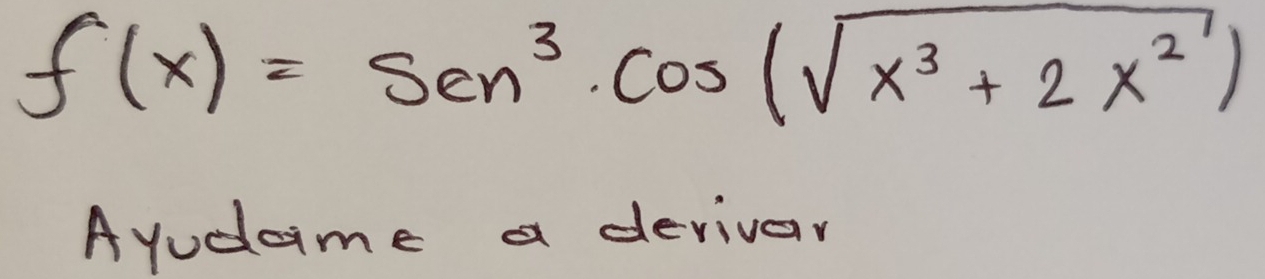 f(x) = Sen³ . Cos (√x³ + 2x²)
Ayudame a derivar